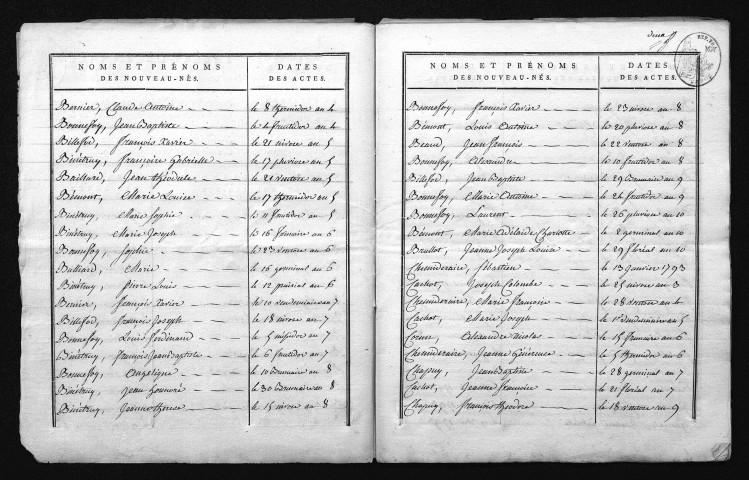 NOMS ET PRÉNOMS DES NOUVEAU-NÉS. DATES DES ACTES.
Bernier, Claude Antoine le 8 thermidor an 4
Bonnefoy, Jean Baptiste le 4 fructidor an 4
Billefod, François Xavier le 21 nivose an 5
Binétruy, Françoise Gabrielle le 17 pluviose an 5
Baillard, Jean Théodule le 21 ventose an 5
Bémont, Marie Louise le 17 thermidor an 5
Binétruy, Marie Sophie le 11 fructidor an 5
Binétruy, Marie Joseph le 16 frimaire an 6
Bonnefoy, Sophie le 23 ventose an 6
Bulliard, Marie le 16 germinal an 6
Binétruy, Pierre Louis le 12 prairial an 6
Bernier, François Xavier le 10 vendemiaire an 7
Billefod, François Joseph le 18 nivose an 7
Bonnefoy, Louis Ferdinand le 5 messidor an 7
Binétruy, François Jean Baptiste le 6 fructidor an 7
Bonnefoy, Angelique le 10 brumaire an 8
Binétruy, Jean le 30 brumaire an 8
Binétruy, Jeanne Therese le 15 nivose an 8
deux
NOMS ET PRÉNOMS DES NOUVEAU-NÉS. DATES DES ACTES.
Bonnefoy, François Xavier le 23 nivose an 8
Bémont, Louis Antoine le 20 pluviose an 8
Beaud, Jean François le 22 ventose an 8
Bonnefoy, Alexandre le 10 fructidor an 8
Billefod, Jean Baptiste le 29 brumaire an 9
Bonnefoy, Marie Antoine le 24 fructidor an 9
Bonnefoy, Laurent le 26 pluviose an 10
Bémont, Marie Adélaide Charlotte le 2 germinal an 10
Jeanne Joseph Louise le 29 floréal an 10
Chemideraire, Sébastien le 13 janvier 1793
Cachot, Joseph Colombe le 25 nivose an 3
Chemideraire, Marie Françoise le 28 ventose an 4
Cachot, Marie Joseph le 1er vendemiaire an 5
Alexandre Nicolas le 15 frimaire an 6
Chemideraire, Jeanne Générense le 5 thermidor an 6
Chapuy, Jean Baptiste le 28 germinal an 7
Cachot, Jeanne Françoise le 21 floréal an 7
Chapuy, François Théodore le 18 ventose an 9